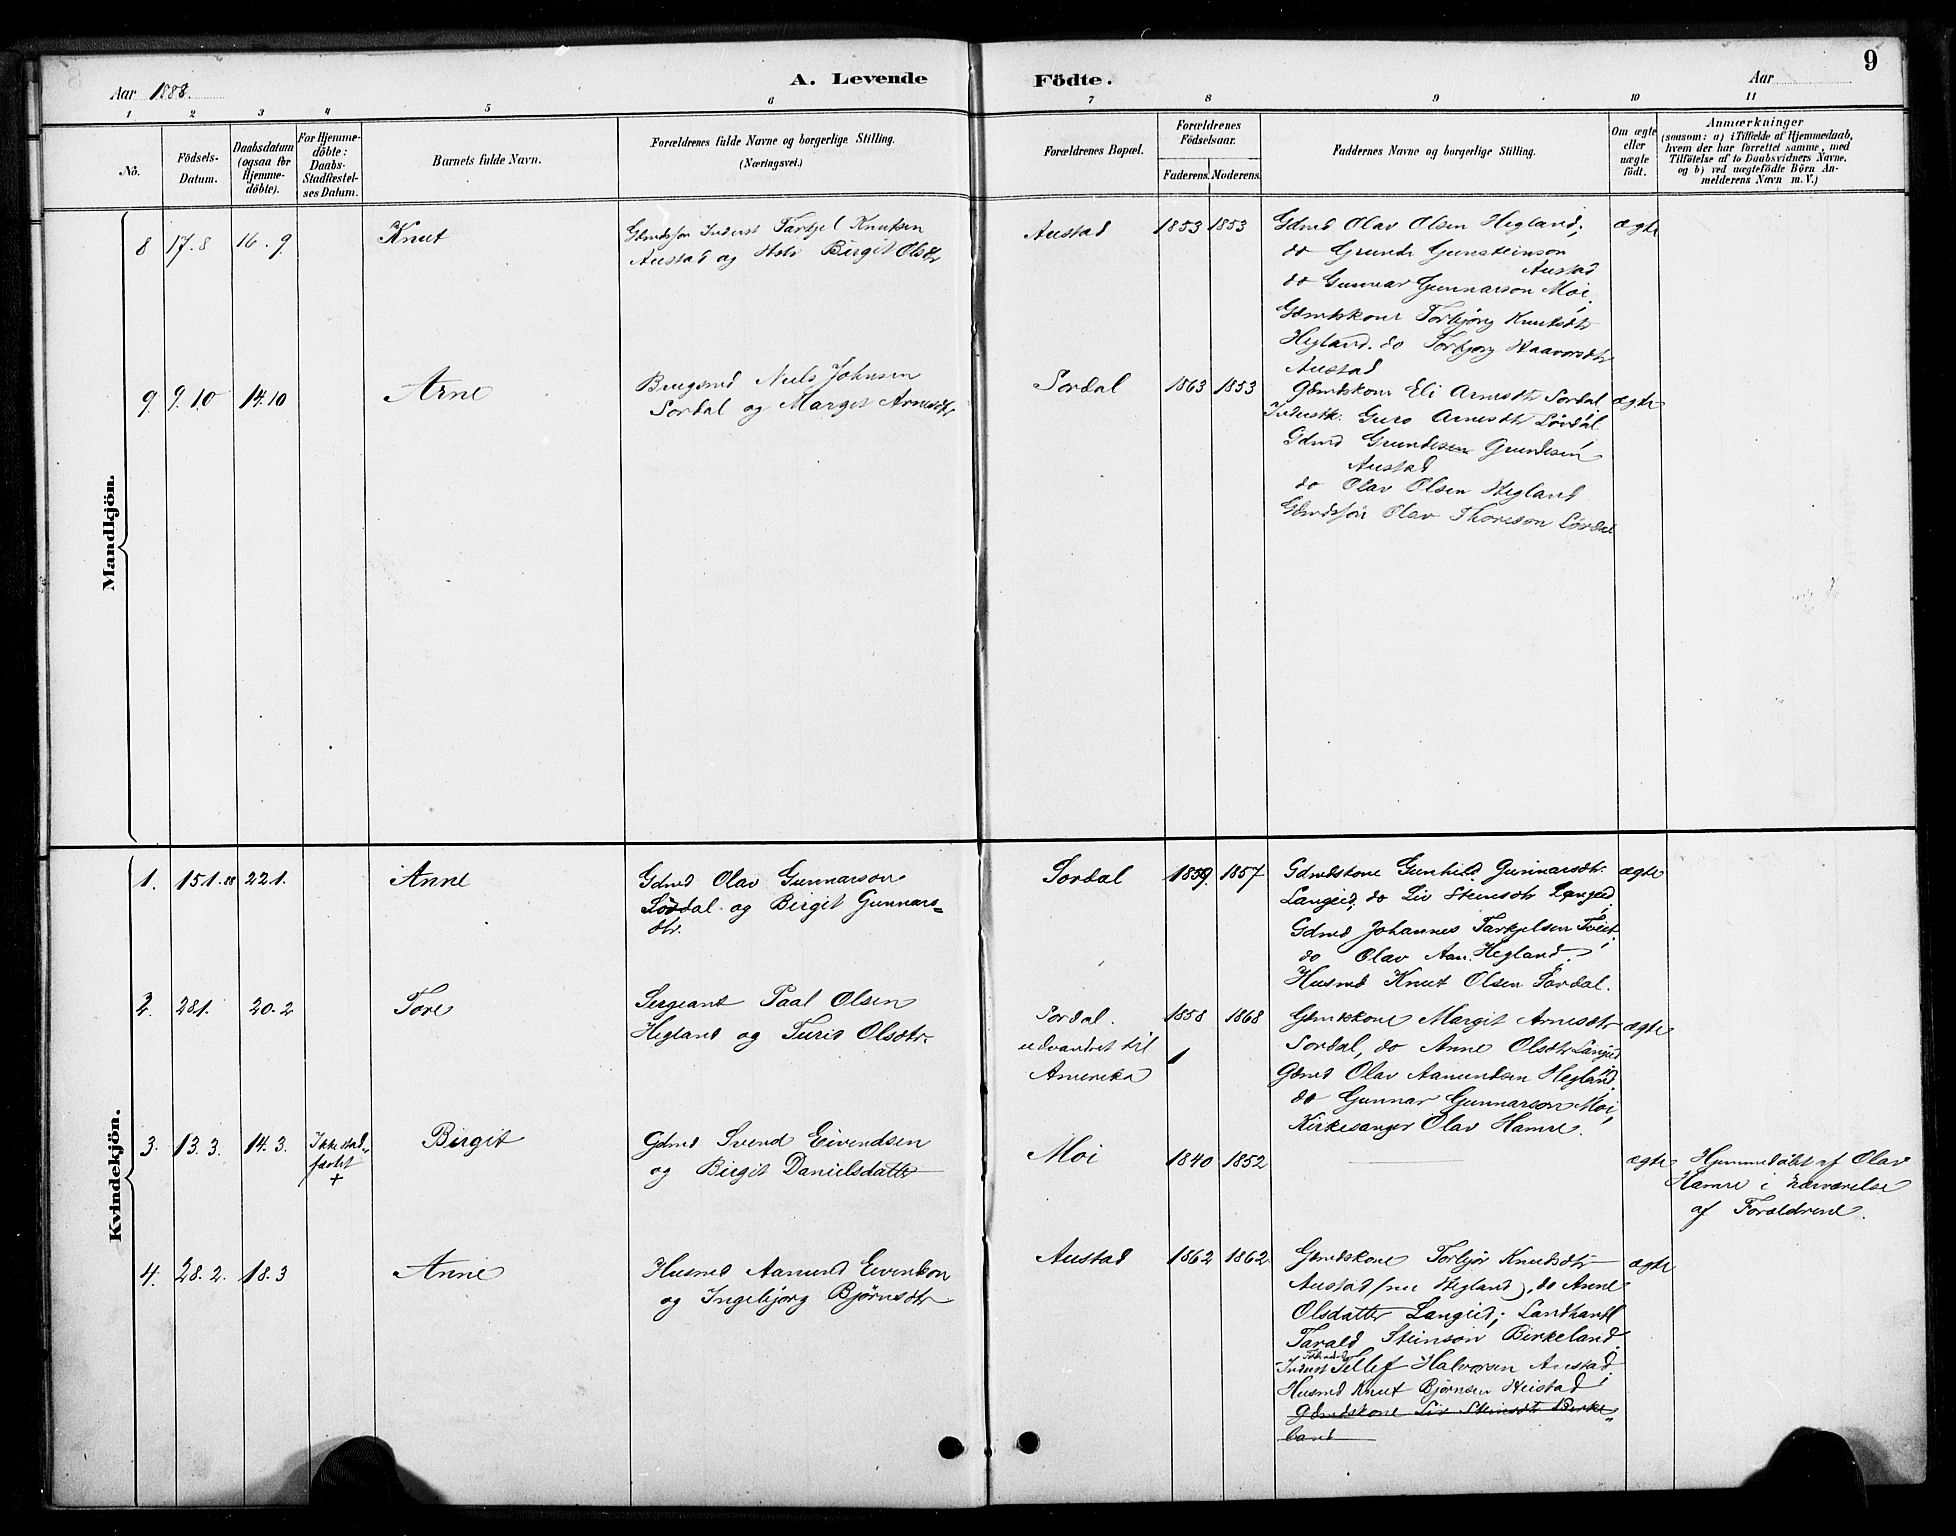 9
Aar 1888.
A. Levende Födte.
Aar
1 2 3 4 5 6 7 8 9 10 11
Nö.
Födsels-Datum.
Daabsdatum (ogsaa for Hjemme-döbte).
For Hjemme-döbte: Daabs-Stadfæstel-ses Datum.
Barnets fulde Navn.
Forældrenes fulde Navne og borgerlige Stilling.
(Næringsvei.)
Forældrenes Bopæl.
Forældrenes Födselsaar.
Faderens. Moderens.
Faddernes Navne og borgerlige Stilling.
Om ægte eller uægte födt.
Anmærkninger
(saasom: a) i Tilfælde af Hjemmedaab,
hvem der har forrettet samme, med
Tilföielse af to Daabsvidners Navne,
og b) ved uægtefödte Börn An-
melderens Navn m. V.)
Mandkjön.
8 17.8 16.9 Knut
Gdmdssøn Inderst Tarkjel Knutsen
Austad og Hstr Birgit Olsdtr
Austad 1853 1853
Gdmd Olav Olsen Hegland,
do Grunde Gunsteinson
Austad
do Gunnar Gunnarson Moi,
Gdmdskone Torbjørg Knutsdtr
Hegland. do Torbjørg Haavorsdtr
Austad
ægte
9 9.10 14.10 Arne
Brugsmd Niels Johnsen
Sordal og Marget Arnesdtr
Sordal 1863 1853
Gdmdskone Eli Arnesdtr Sordal,
Inderstk. Guro Arnesdtr Sørdal
Gdmd Grundesen Grundesen
Austad
do Olav Olsen Hegland
Gdmdssøn Olav Thoreson Sørdal
ægte
Kvindekjön.
1. 15.1.88 22.1. Anne
Gdmd Olav Gunnarson
Sördal og Birgit Gunnars-
dtr.
Sordal 1859. 1857
Gdmdskone Gunhild Gunnarsdtr.
Langeid, do Liv Steinsdtr Langeid,
Gdmd Johannes Tarkjelsen Tveit,
do Olav Aan. Hegland.
Husmd Knut Olsen Sordal.
ægte
2. 28.1. 20.2 Tore
Sergeant Paal Olsen
Hegland og Turid Olsdtr.
Sordal.
udvandret til
Amerika
1858 1868
1
Gdmdskone Margit Arnesdtr
Sordal, do Anne Olsdtr Langeid
Gdmd Olav Aamundsen Hegland,
do Gunnar Gunnarson Moi,
Kirkesanger Olav Hamre.
ægte
3. 13.3. 14.3. Ikke stad-
fæstet
+
Birgit
Gdmd Svend Eivendsen
og Birgit Danielsdatter
Moi 1840 1852
ægte
Hjemmedøbt af Olav
Hamre i nærværelse
af Forældrene.
4. 28.2. 18.3 Anne
Husmd Aamund Eivendson
og Ingebjørg Bjørnsdtr
Austad 1862 1862.
Gdmdskone Torbjør Knudsdtr
Austad (nu Hegland), do Anne
Olsdatter Langeid, Landhandl
Tarald Steinson Birkeland,
Inderst Tellef Halvorsen Austad,
Husmd Knut Bjørnsen Heistad
Gdmdskone Liv Steinsdtr Birke-
land
ægte